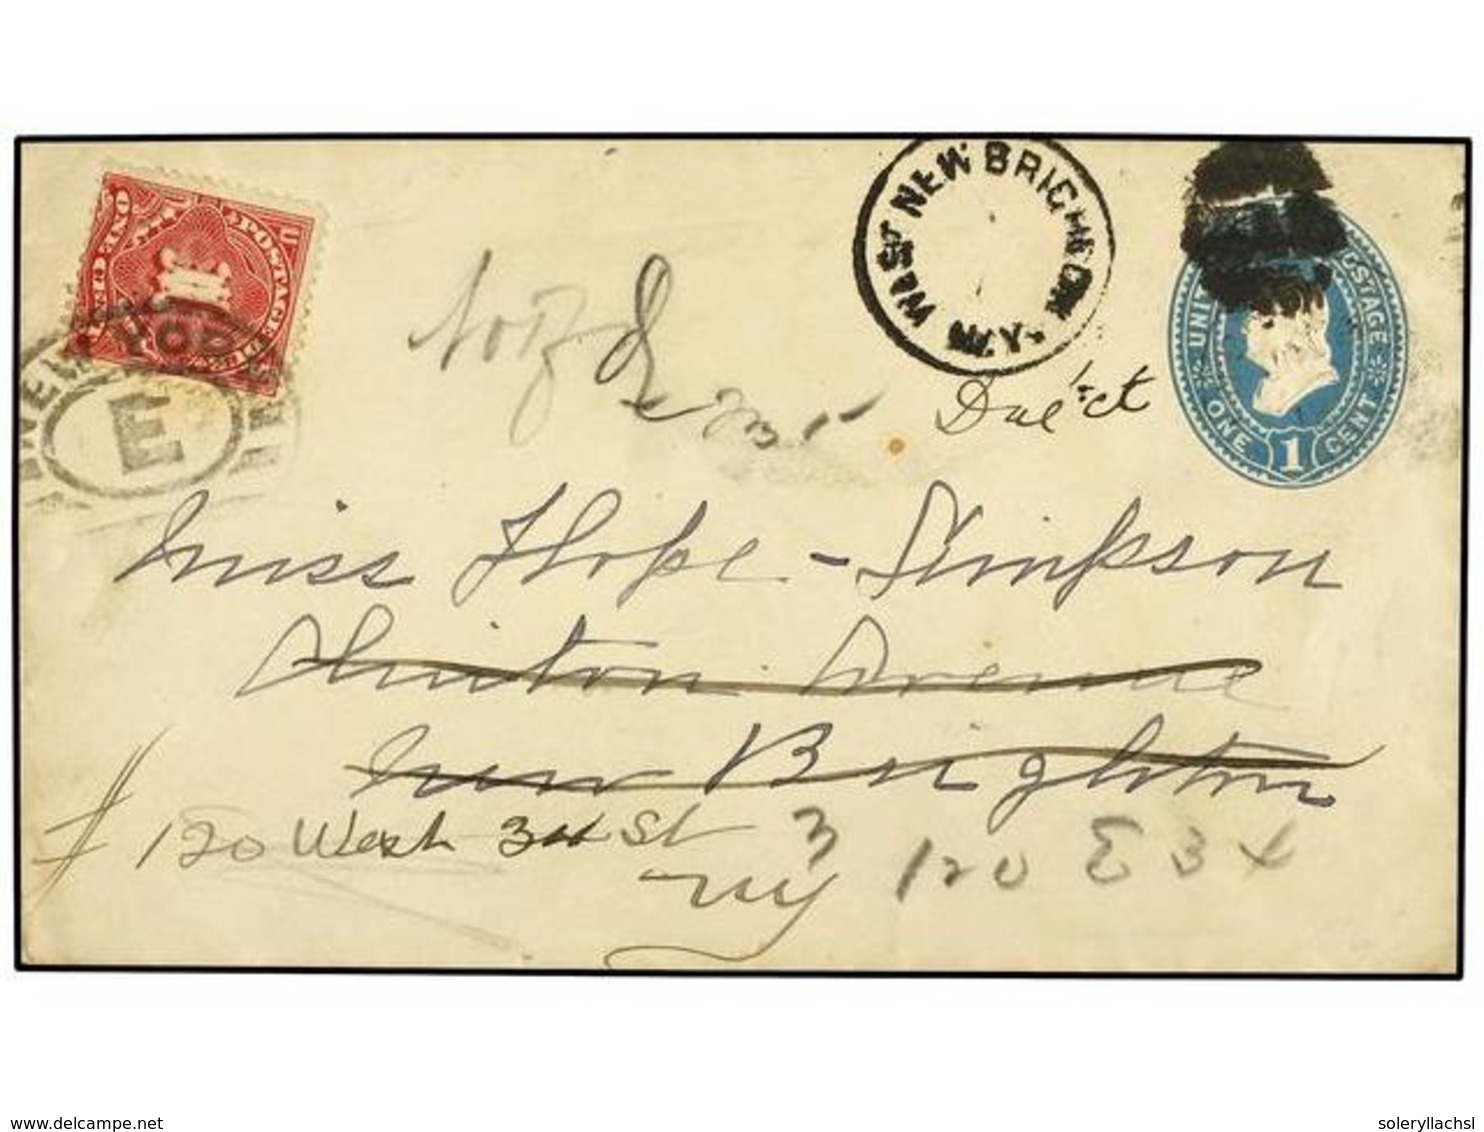 WEST NEW BRIGHTON
N.Y.
UNIT POSTAGE
ONE 1 CENT
U POSTAGE
ONE CENT
NEW YORK
E
Due 1 ct
Miss Hope-Simpson
Clinton Avenue
New Brighton
120 West 34 St
NY
3
120 E 34
www.delcampe.net
soleryllachsl